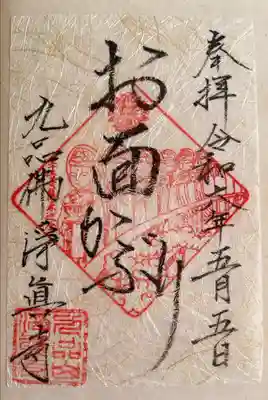 奉拝 令和六年五月五日
お面かぶり
九品佛 浄真寺